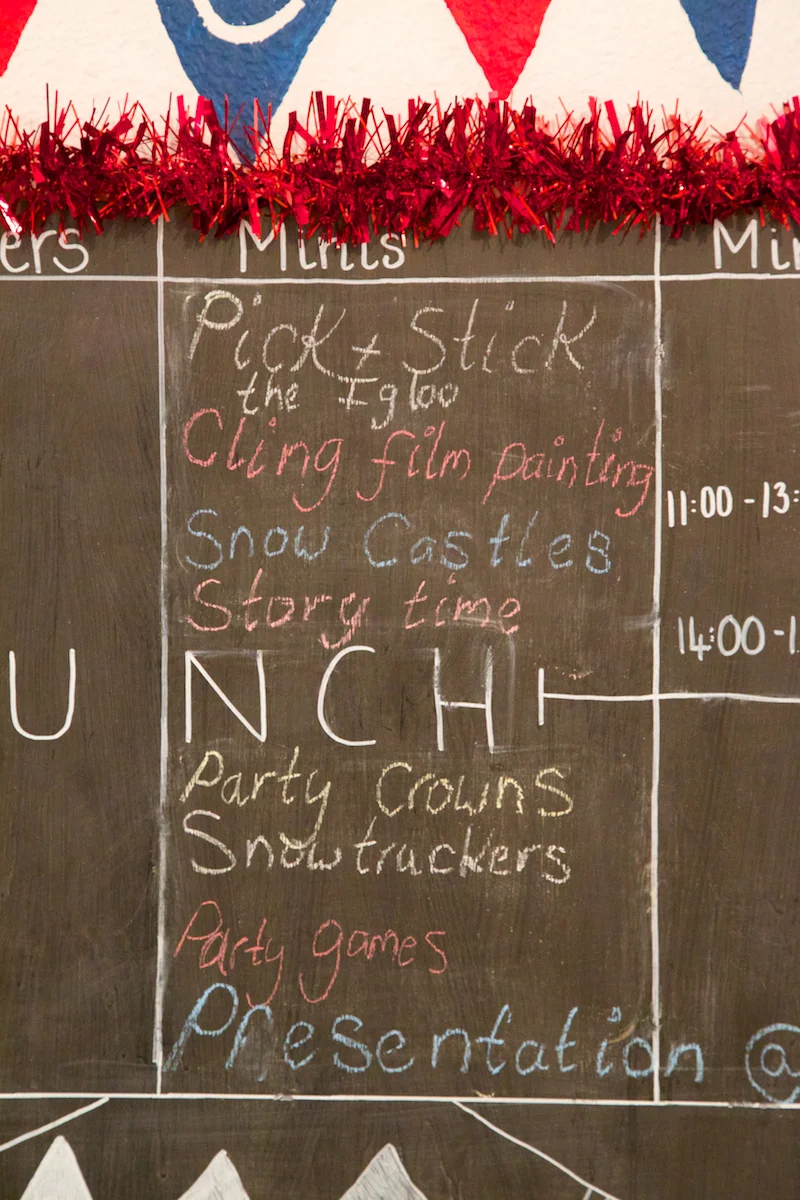 ers Minis Mi
Pick + Stick
the Igloo
Cling film painting
11:00 - 13:
Snow Castles
Story time
14:00 - 1
UNCH
Party Crowns
Snowtruckers
Party games
Presentation @